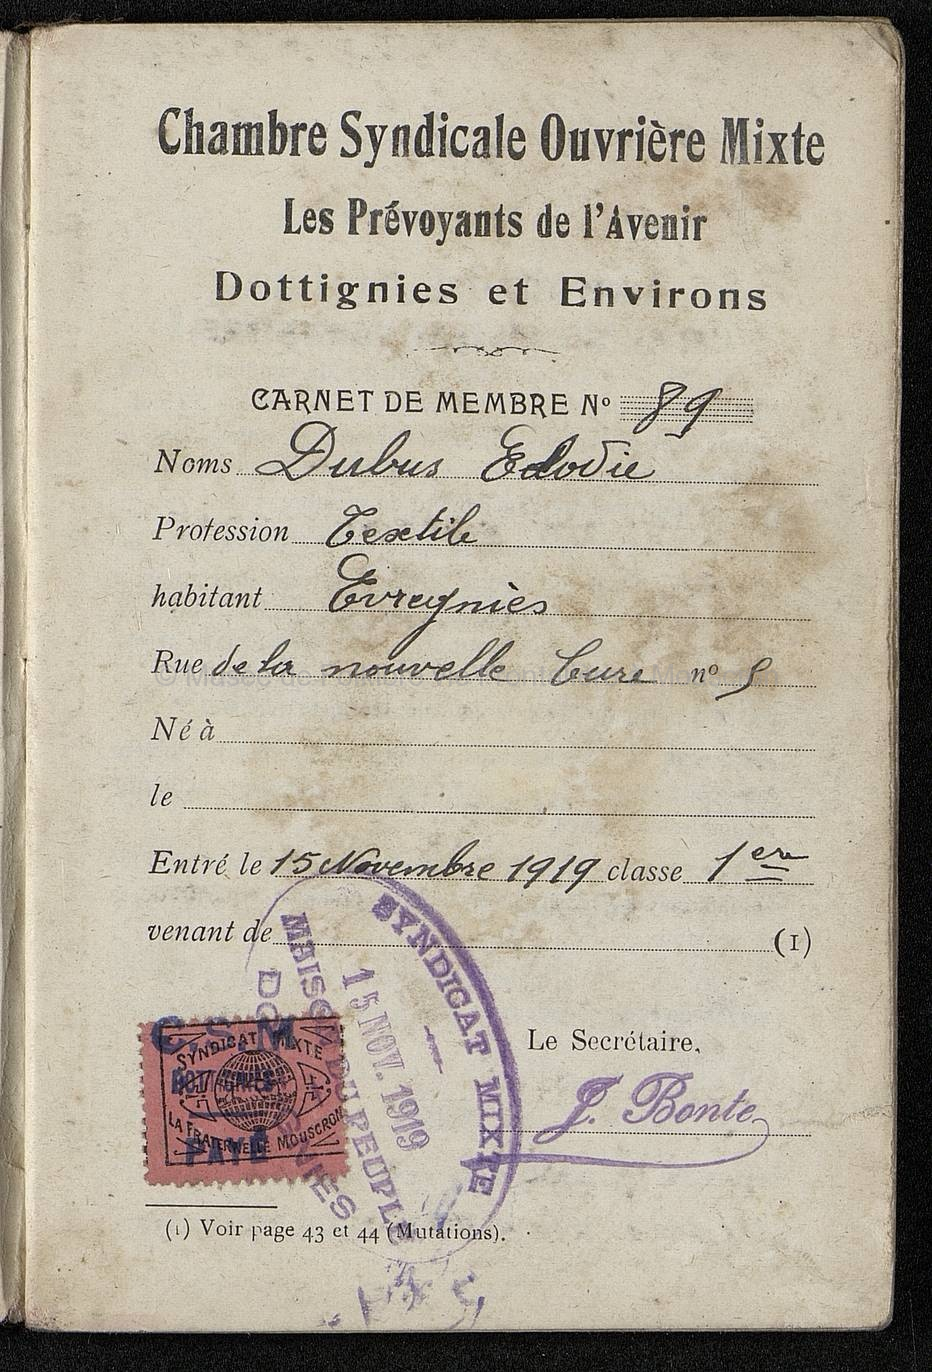 Chambre Syndicale Ouvrière Mixte
Les Prévoyants de l'Avenir
Dottignies et Environs
CARNET DE MEMBRE Nº 89
Noms Dubus Elodie
Profession Textile
habitant Evregnies
Rue de la nouvelle Cure nº 5
Né à
le
Entré le 15 Novembre 1919 classe 1ere
venant de (1)
SYNDICAT MIXTE
MAISON DU PEUPLE
15 NOV. 1919
C.S.M.
SYNDICAT MIXTE
LA FRATERNELLE MOUSCRON
PAYÉ
Le Secrétaire,
J. Bonte
(1) Voir page 43 et 44 (Mutations).